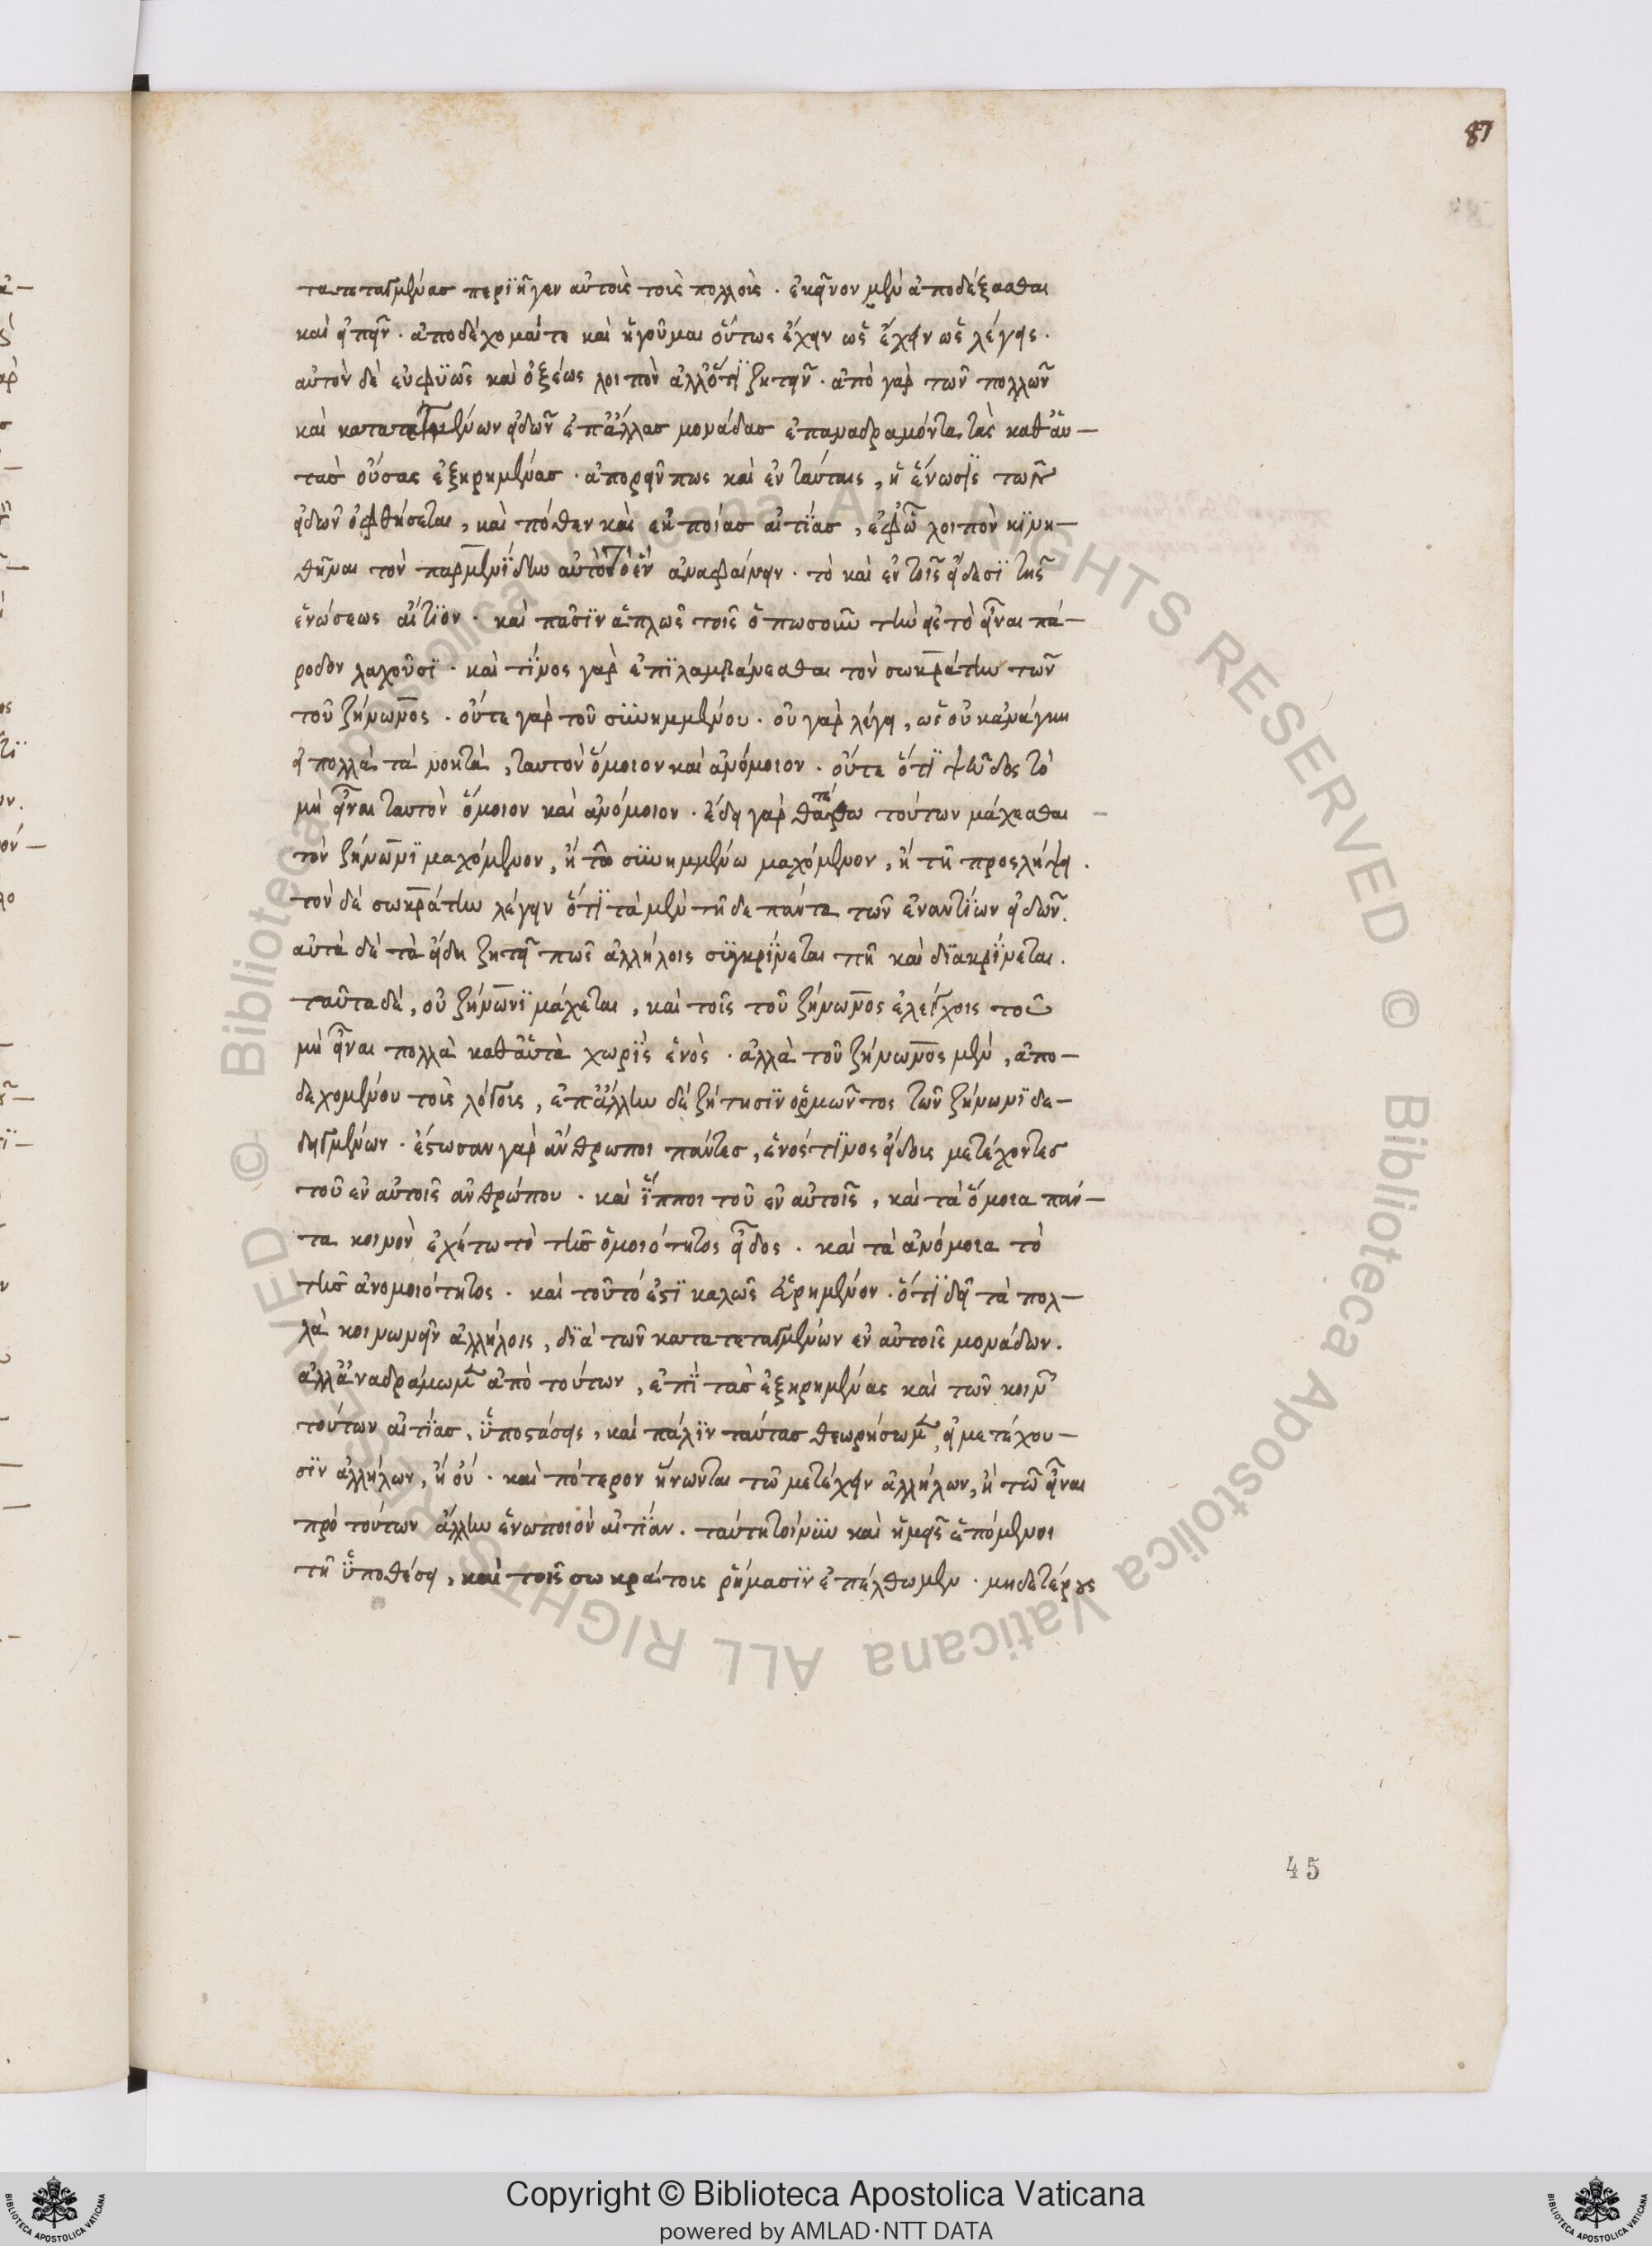 87
τατεταγμένας περϊῆγεν αὐτοῖς τοῖς πολλοῖς . ἐκεῖνον μὲν ἀποδέξασθαι
καὶ εἰπεῖν . ἀποδέχομαί τε καὶ ἡγοῦμαι οὕτως ἔχειν ὡς ἔχειν ὡς λέγεις .
αὐτὸν δὲ εὐφϋῶς καὶ ὀξέως λοιπὸν ἀλλ' ὅτϊ ζητεῖν . ἀπὸ γὰρ τῶν πολλῶν
καὶ κατατεταγμένων εἰδῶν ἐπ' ἄλλας μονάδας ἐπαναδραμόντα τὰς καθ' αὑ—
τὰς οὔσας ἐξηρημένας . ἀπορεῖν πως καὶ ἐν ταύταις , ἡ ἕνωσϊς τῶν
εἰδῶν ὀφθήσεται , καὶ πόθεν καὶ ἐκ ποίας αἰτϊας , ἐφ' ᾧ λοιπὸν κϊνη—
θῆναι τὸν παρμενϊδην αὐτὸ τὸ ἓν ἀναφαίνειν . τὸ καὶ ἐν τοῖς εἴδεσϊ τῆς
ἑνώσεως αἴτϊον . καὶ πᾶσϊν ἁπλῶς τοῖς ὁπωσοῦν τὴν εἰς τὸ εἶναι πά—
ροδον λαχοῦσϊ . καὶ τϊνος γὰρ ἐπϊλαμβάνεσθαι τὸν σωκράτην τῶν
τοῦ ζήνωνος . οὔτε γὰρ τοῦ συνημμένου . οὐ γὰρ λέγει , ὡς οὐκ ἀνάγκη
εἰ πολλὰ τὰ νοητὰ , ταυτὸν ὅμοιον καὶ ἀνόμοιον . οὔτε ὅτϊ ψεῦδος τὸ
μὴ εἶναι ταυτὸν ὅμοιον καὶ ἀνόμοιον . ἔδει γὰρ θατέρῳ τούτων μάχεσθαι
τὸν ζήνωνϊ μαχόμενον , ἢ τῷ συνημμένῳ μαχόμενον , ἢ τῇ προσλήψει .
τὸν δὲ σωκράτην λέγειν ὅτϊ τὰ μὲν τῇδε πάντα τῶν ἐναντϊων εἰδῶν .
αὐτὰ δὲ τὰ εἴδη ζητεῖ πῶς ἀλλήλοις συγκρϊνεται πῆ καὶ δϊακρϊνεται .
ταῦτα δὲ , οὐ ζήνωνϊ μάχεται , καὶ τοῖς τοῦ ζήνωνος ἐλέγχοις τοῦ
μὴ εἶναι πολλὰ καθ' αὑτὰ χωρϊς ἑνὸς . ἀλλὰ τοῦ ζήνωνος μὲν , ἀπο—
δεχομένου τοῖς λόγοις , ἐπ' ἄλλην δὲ ζήτησϊν ὁρμῶντος τῶν ζήνωνϊ δε—
δειγμένων . ἔστωσαν γὰρ ἄνθρωποι πάντες , ἑνός τϊνος εἴδους μετέχοντες
τοῦ ἐν αὐτοῖς ἀνθρώπου . καὶ ἵπποι τοῦ ἐν αὐτοῖς , καὶ τὰ ὅμοια πάν—
τα κοινὸν ἐχέτω τὸ τῆς ὁμοιότητος εἶδος . καὶ τὰ ἀνόμοια τὸ
τῆς ἀνομοιότητος . καὶ τοῦτό ἐστϊ καλῶς εἰρημένον . ὅτϊ δεῖ τὰ πολ—
λὰ κοινωνεῖν ἀλλήλοις , δϊὰ τῶν κατατεταγμένων ἐν αὐτοῖς μονάδων .
ἀλλ' ἀναδράμωμεν ἀπὸ τούτων , ἐπϊ τὰς ἐξηρημένας καὶ τῶν κοινῶν
τούτων αἰτϊας , ὑποστάσεις , καὶ πάλϊν ταύτας θεωρήσωμεν , εἰ μετέχου—
σϊν ἀλλήλων , ἢ οὐ . καὶ πότερον ἥνωνται τῷ μετέχειν ἀλλήλων , ἢ τῷ εἶναι
πρὸ τούτων ἄλλην ἑνωποιὸν αἰτϊαν . ταύτῃ τοίνυν καὶ ἡμεῖς ἑπόμενοι
τῇ ὑποθέσει , καὶ τοῖς σωκράτους ῥήμασϊν ἐπέλθωμεν . μηδετέρους
45